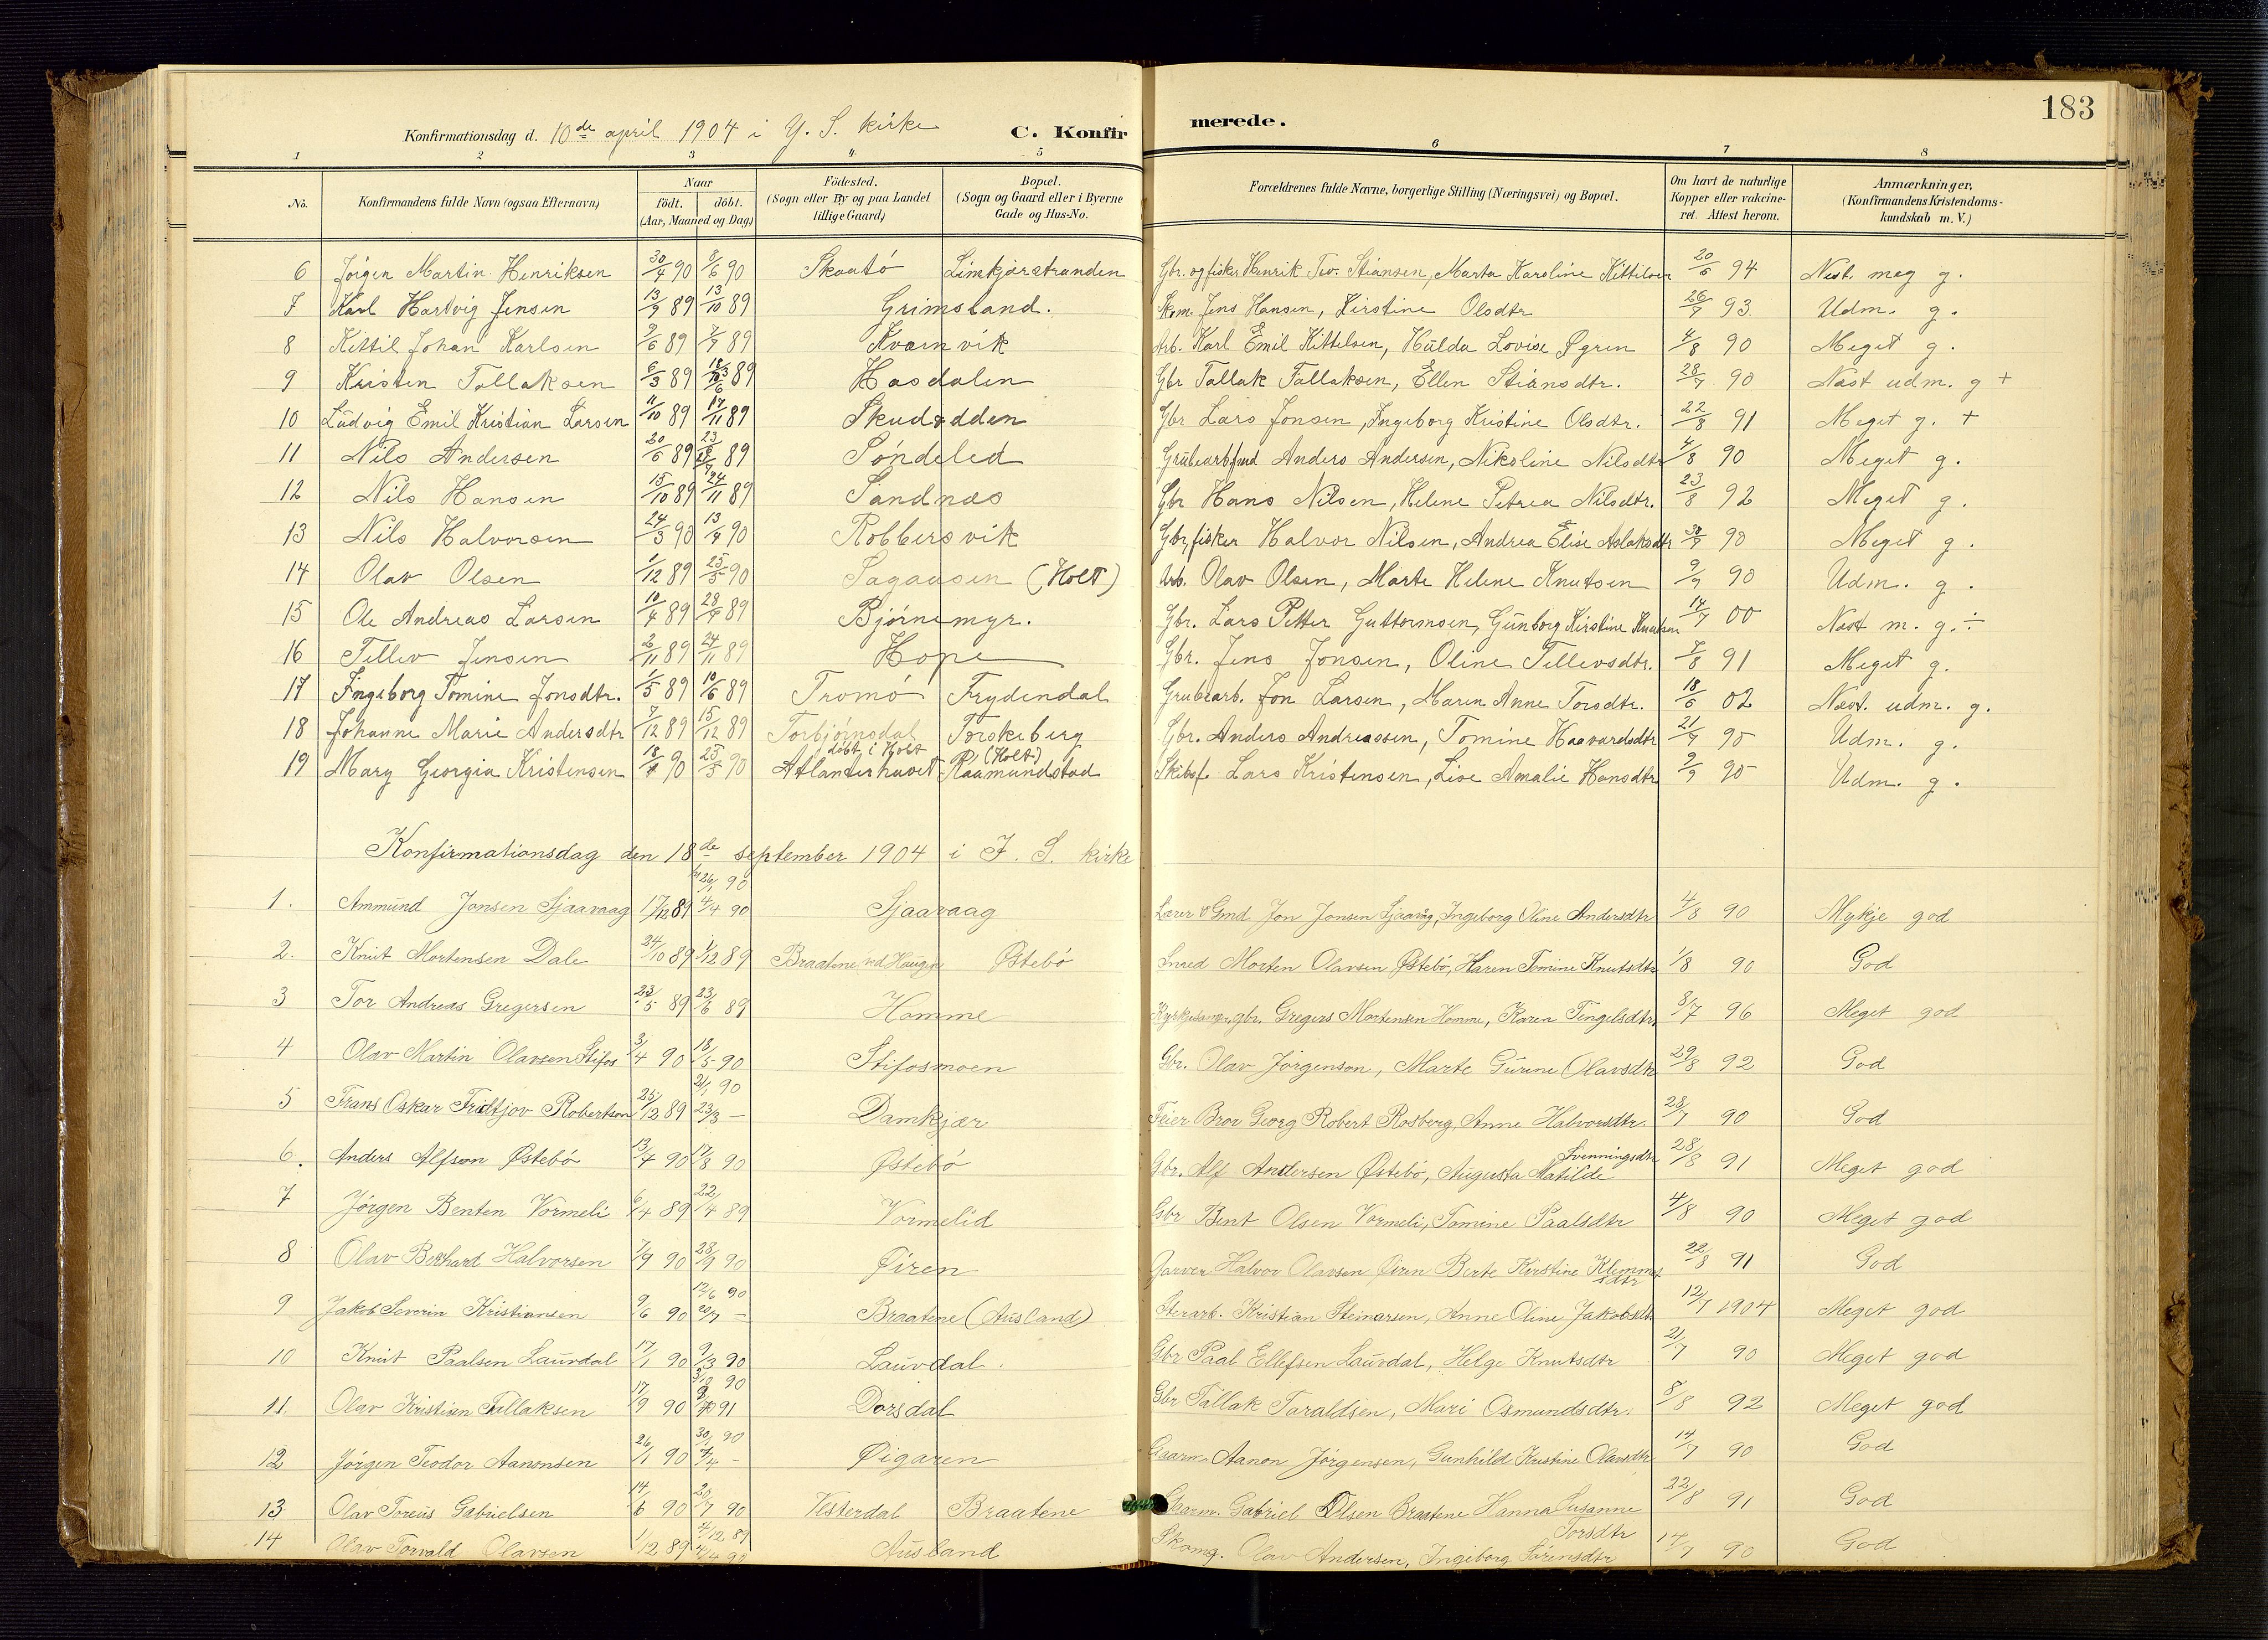 183
Konfirmationsdag d. 10de april 1904 i Y. S. kirke C. Konfirmerede.
1 2 3 4. 5 6 7 8
No. Konfirmandens fulde Navn (ogsaa Efternavn) Naar født. døbt. (Aar, Maaned og Dag) Fødested. (Sogn eller By og paa Landet tillige Gaard) Bopæl. (Sogn og Gaard eller i Byerne Gade og Hus-No. Forældrenes fulde Navne, borgerlige Stilling (Næringsvei) og Bopæl. Om havt de naturlige Kopper eller vakcineret. Attest herom. Anmærkninger, (Konfirmandens Kristendomskundskab m. V.)
6 Jörgen Martin Henriksen 30/4 90 8/6 90 Skaatö Limkjærstranden Gbr. og fisker Henrik Tev. Stiansen, Marta Karoline Kittilsen 20/6 94 Næst. meg g.
7 Karl Hartvig Jensen 13/9 89 13/10 89 Grimsland. Skom. Jens Hansen, Kirstine Olsdtr 26/7 93. Udm. g.
8 Kittil Johan Karlsen 9/6 89 7/7 89 Kvarnvik Arb. Karl Emil Kittelsen, Hulda Lovise Øgren 4/8 90 Meget g.
9 Kristen Tallaksen 6/3 89 89 Hasdalen Gbr Tallak Tallaksen, Ellen Stiansdtr. 28/7 90 Næst udm. g +
10 Ludvig Emil Kristian Larsen 11/10 89 17/11 89 Skudodden Gbr Lars Jonsen, Ingeborg Kristine Olsdtr. 22/8 91 Meget g. +
11 Nils Andersen 20/6 89 89 Söndeled Grubearbfmd Anders Andersen, Nikoline Nilsdtr 4/8 90 Meget g.
12 Nils Hansen 15/10 89 24/11 89 Sandnæs Gbr Hans Nilsen, Helene Petrea Nilsdtr. 23/8 92 Meget g.
13 Nils Halvorsen 24/3 90 13/4 90 Robbersvik Gbr, fisker Halvor Nilsen, Andrea Elise Aslaksdtr 90 Meget g.
14 Olav Olsen 1/12 89 25/5 90 Sagaasen (Holt) Arb. Olav Olsen, Marte Helene Knutsen 9/9 90 Udm. g.
15 Ole Andreas Larsen 10/4 89 28/4 89 Bjørnemyr. Gbr. Lars Petter Guttormsen, Gunborg Kirstine Knutsen 14/7 00 Næst m. g. ÷
16 Tellev Jensen 2/11 89 24/11 89 Hope Gbr. Jens Jonsen, Oline Tellevsdtr. 7/8 91 Meget g.
17 Ingeborg Tomine Jonsdtr. 1/5 89 10/6 89 Tromö Frydendal Grubearb. Jon Larsen, Maren Anne Torsdtr. 18/6 02 Næst. udm. g.
18 Johanne Marie Andersdtr 7/12 89 15/12 89 Torbjörnsdal Torskeberg Gbr. Anders Andreassen, Tomine Haavardsdtr 21/7 90 Udm. g.
19 Mary Georgia Kristensen 90 25/5 90 Atlanterhavet döbt i Holt Raamundstad (Holt) Skibsf. Lars Kristensen, Lise Amalie Hansdtr 9/9 90 Udm. g.
Konfirmationsdag den 18de september 1904 i I. S. kirke
1. Ammund Jonsen Sjaavaag 17/12 89 26/1 90 4/4 90 Sjaavaag Lærer o Gmd Jon Jonsen Sjaavåg, Ingeborg Oline Andersdtr 4/8 90 Mykje god
2. Knut Mortensen Dale 24/10 89 1/12 89 Braatene ved Haugen Østebö Morten Olavsen Østebö, Karen Tomine Knutsdtr 1/8 90 God
3 Tor Andreas Gregersen 23/5 89 23/6 89 Homme Kyrkjesanger, gbr. Gregers Mortensen Homme, Karen Tengelsdtr, 8/7 96 Meget god
4 Olav Martin Olavsen Stifos 3/4 90 18/5 90 Stifosmoen Gbr. Olav Jörgenson, Marte Gurine Olavsdtr 29/8 92 God
5 Frans Oskar Fridtjov Robertson 25/12 89 21/1 90 23/3 — Damkjær Feier Bror Georg Robert Rosberg, Anne Halvorsdtr. 28/7 90 God
6. Anders Alfson Østebö 13/4 90 17/8 90 Østebö Gbr. Alf Andersen Østebö, Augusta Matilde Svenningsdtr 28/8 91 Meget god
7 Jörgen Benten Vormeli 6/4 89 22/4 89 Vormelid Gbr Bent Olsen Vormeli, Tomine Paalsdtr 4/8 90 Meget god
8 Olav Bernhard Halvorsen 7/9 90 28/9 90 Øiren Garver Halvor Olavsen Øiren Berte Kirstine Klemmetsdtr 22/8 91 God
9 Jakob Severin Kristiansen 9/6 90 12/6 90 20/7 — Braatene (Ausland) Kristian Steinarsen, Anne Oline Jakobsdtr 12/7 1904 Meget god
10 Knut Paalsen Lauvdal 17/1 90 9/3 90 Lauvdal. Gbr Paal Ellefsen Lauvdal, Helge Knutsdtr 21/7 90 Meget god
11. Olav Kristian Tallaksen 17/9 90 90 91 Dorsdal Gbr Tallak Taraldsen, Mari Osmundsdtr. 8/8 92 Meget god
12 Jörgen Teodor Aanonsen 26/1 90 30/1 90 4/4 – Øigaren Gaarm. Aanon Jörgensen, Gunhild Kristine Olavsdtr 14/7 90 God
13 Olav Toreus Gabrielsen 14/6 90 20/7 90 Vesterdal Braatene Gaarm. Gabriel Olsen Braatene Hanna Susanne Torsdtr 22/8 91 God
14 Olav Torvald Olavsen 1/12 89 4/12 89 4/4 90 Ausland Skomg. Olav Andersen, Ingeborg Sörensdtr 14/7 90 God